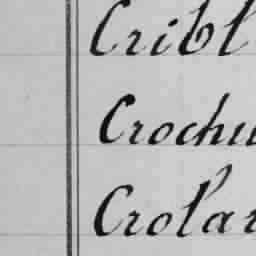 Cribl
Crochu
Crolar